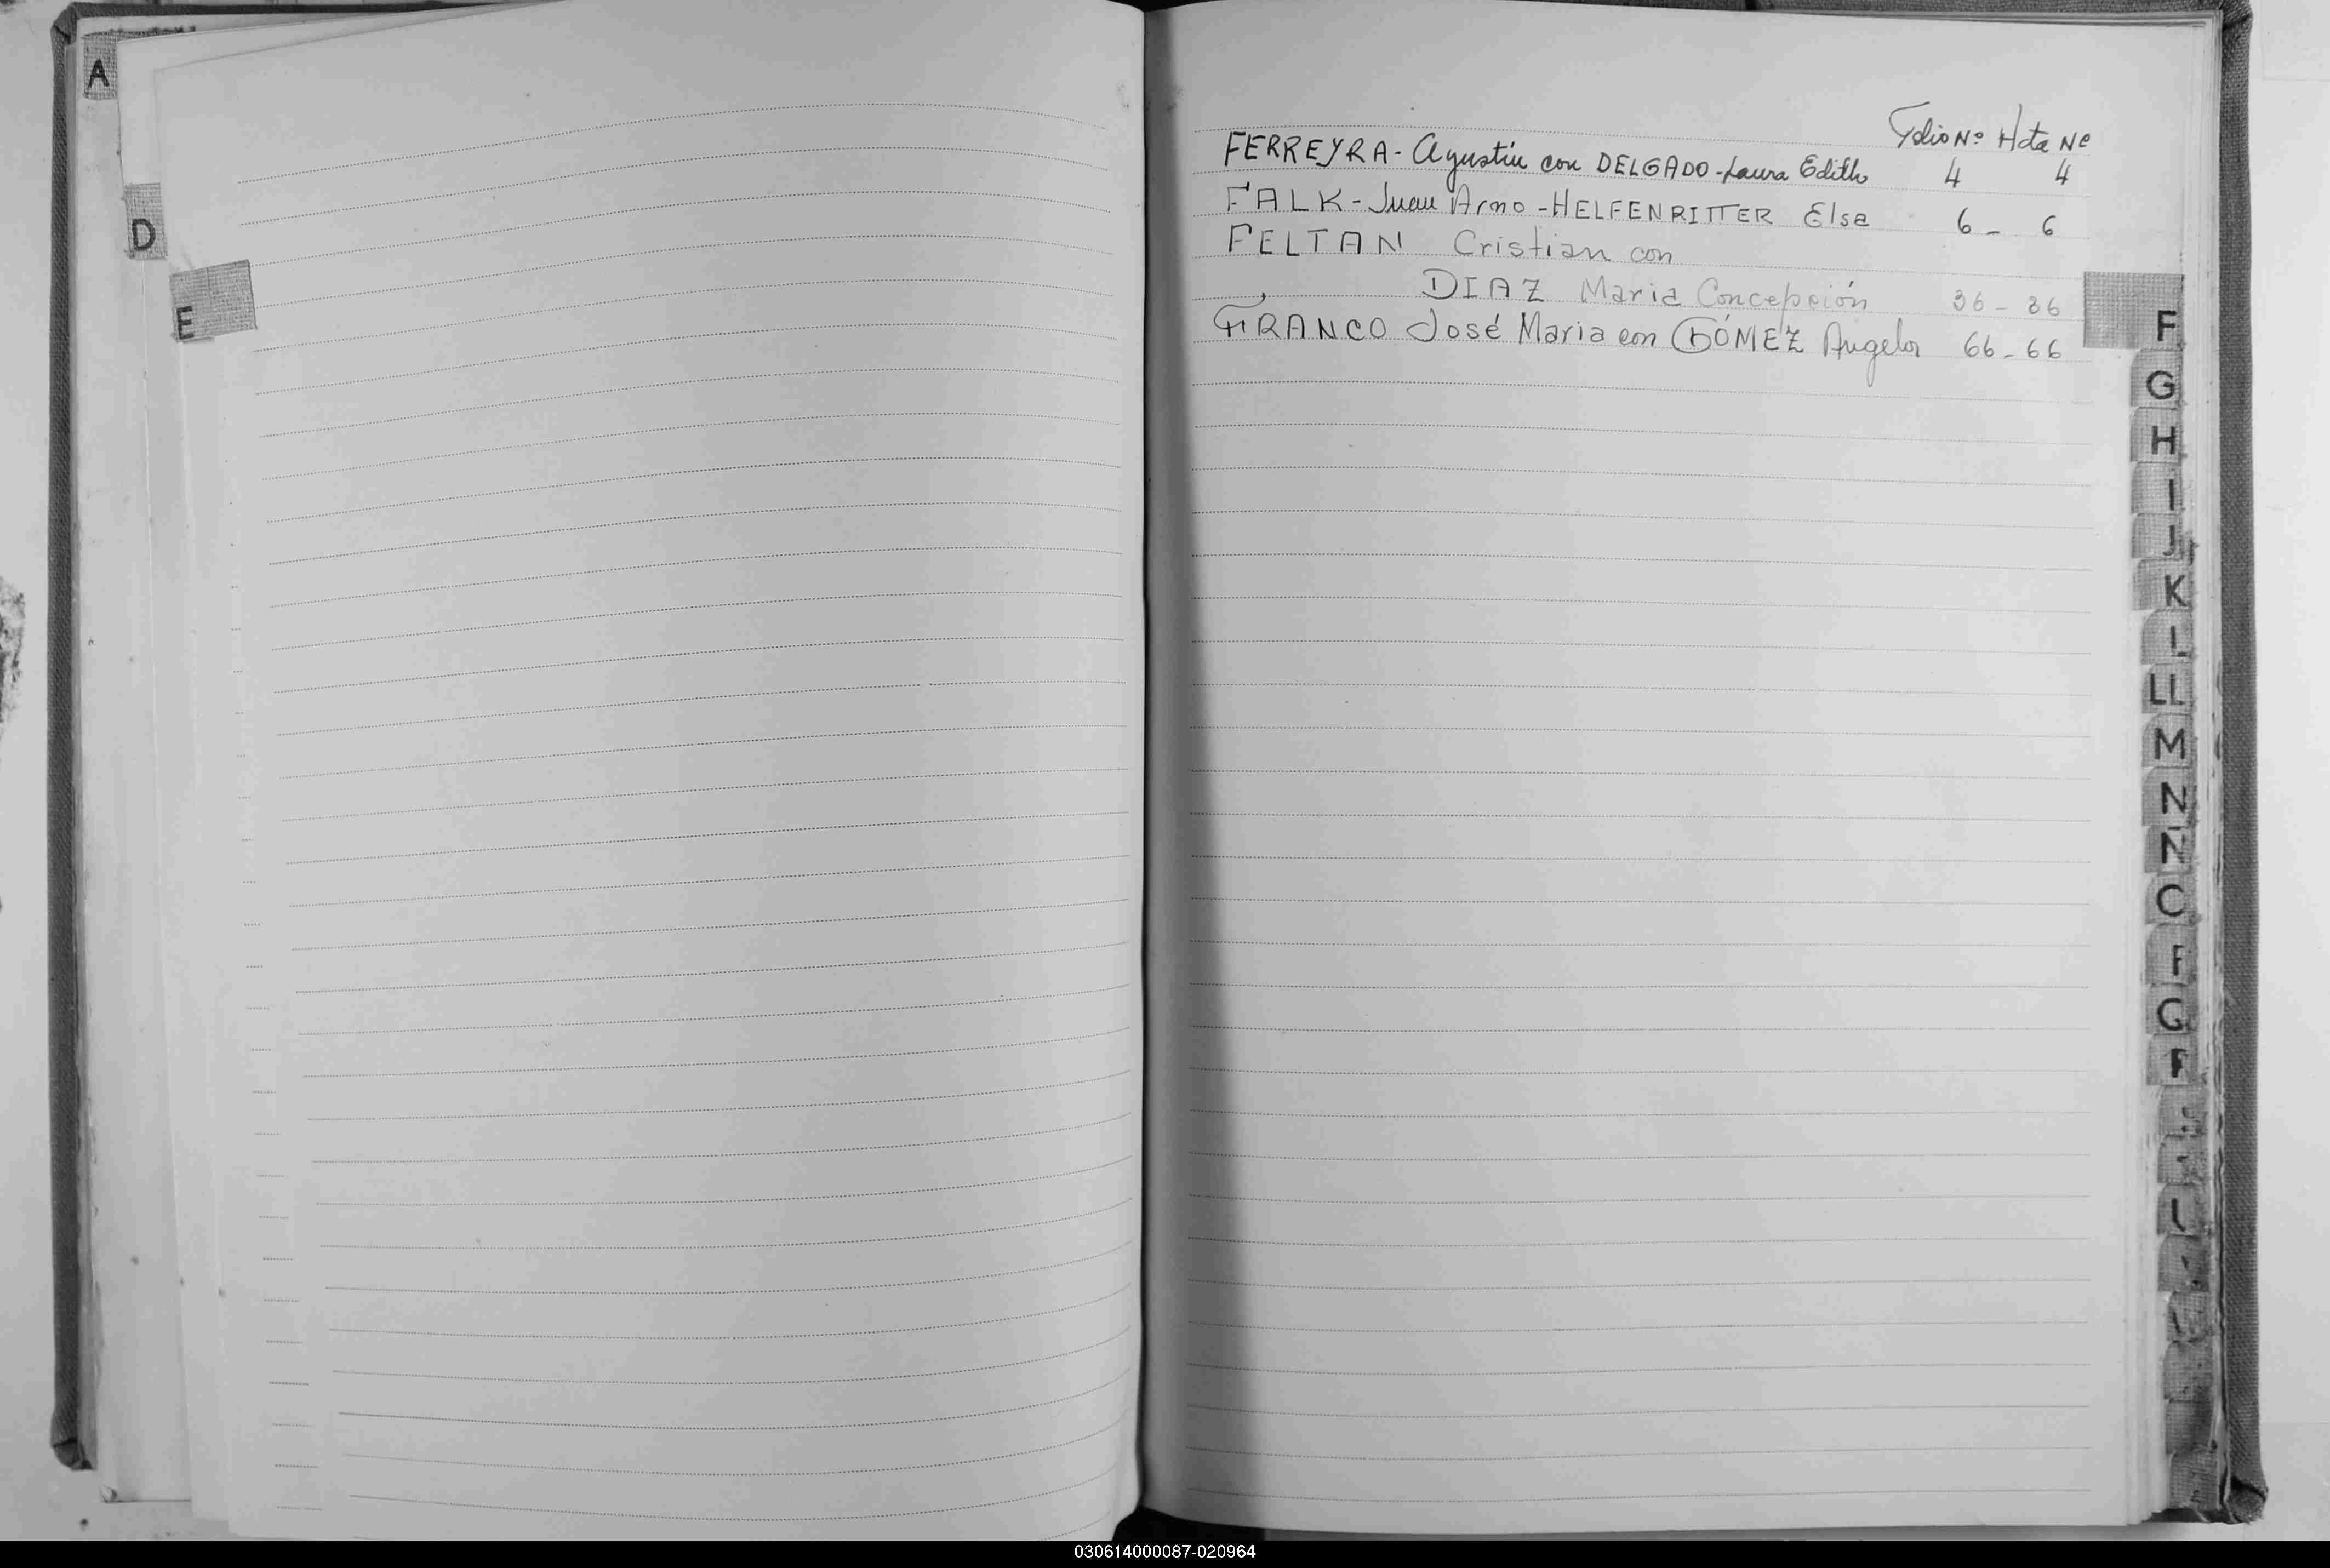 A
D
E
Folio Nº Acta Nº
FERREYRA - Agustín con DELGADO - Laura Edith 4 4
FALK - Juan Arno - HELFENRITTER Elsa 6 - 6
FELTAN Cristian con
DIAZ Maria Concepción 36 - 36
FRANCO José Maria con GÓMEZ Angela 66 - 66
F
G
H
I
J
K
L
LL
M
N
Ñ
O
P
Q
R
030614000087-020964